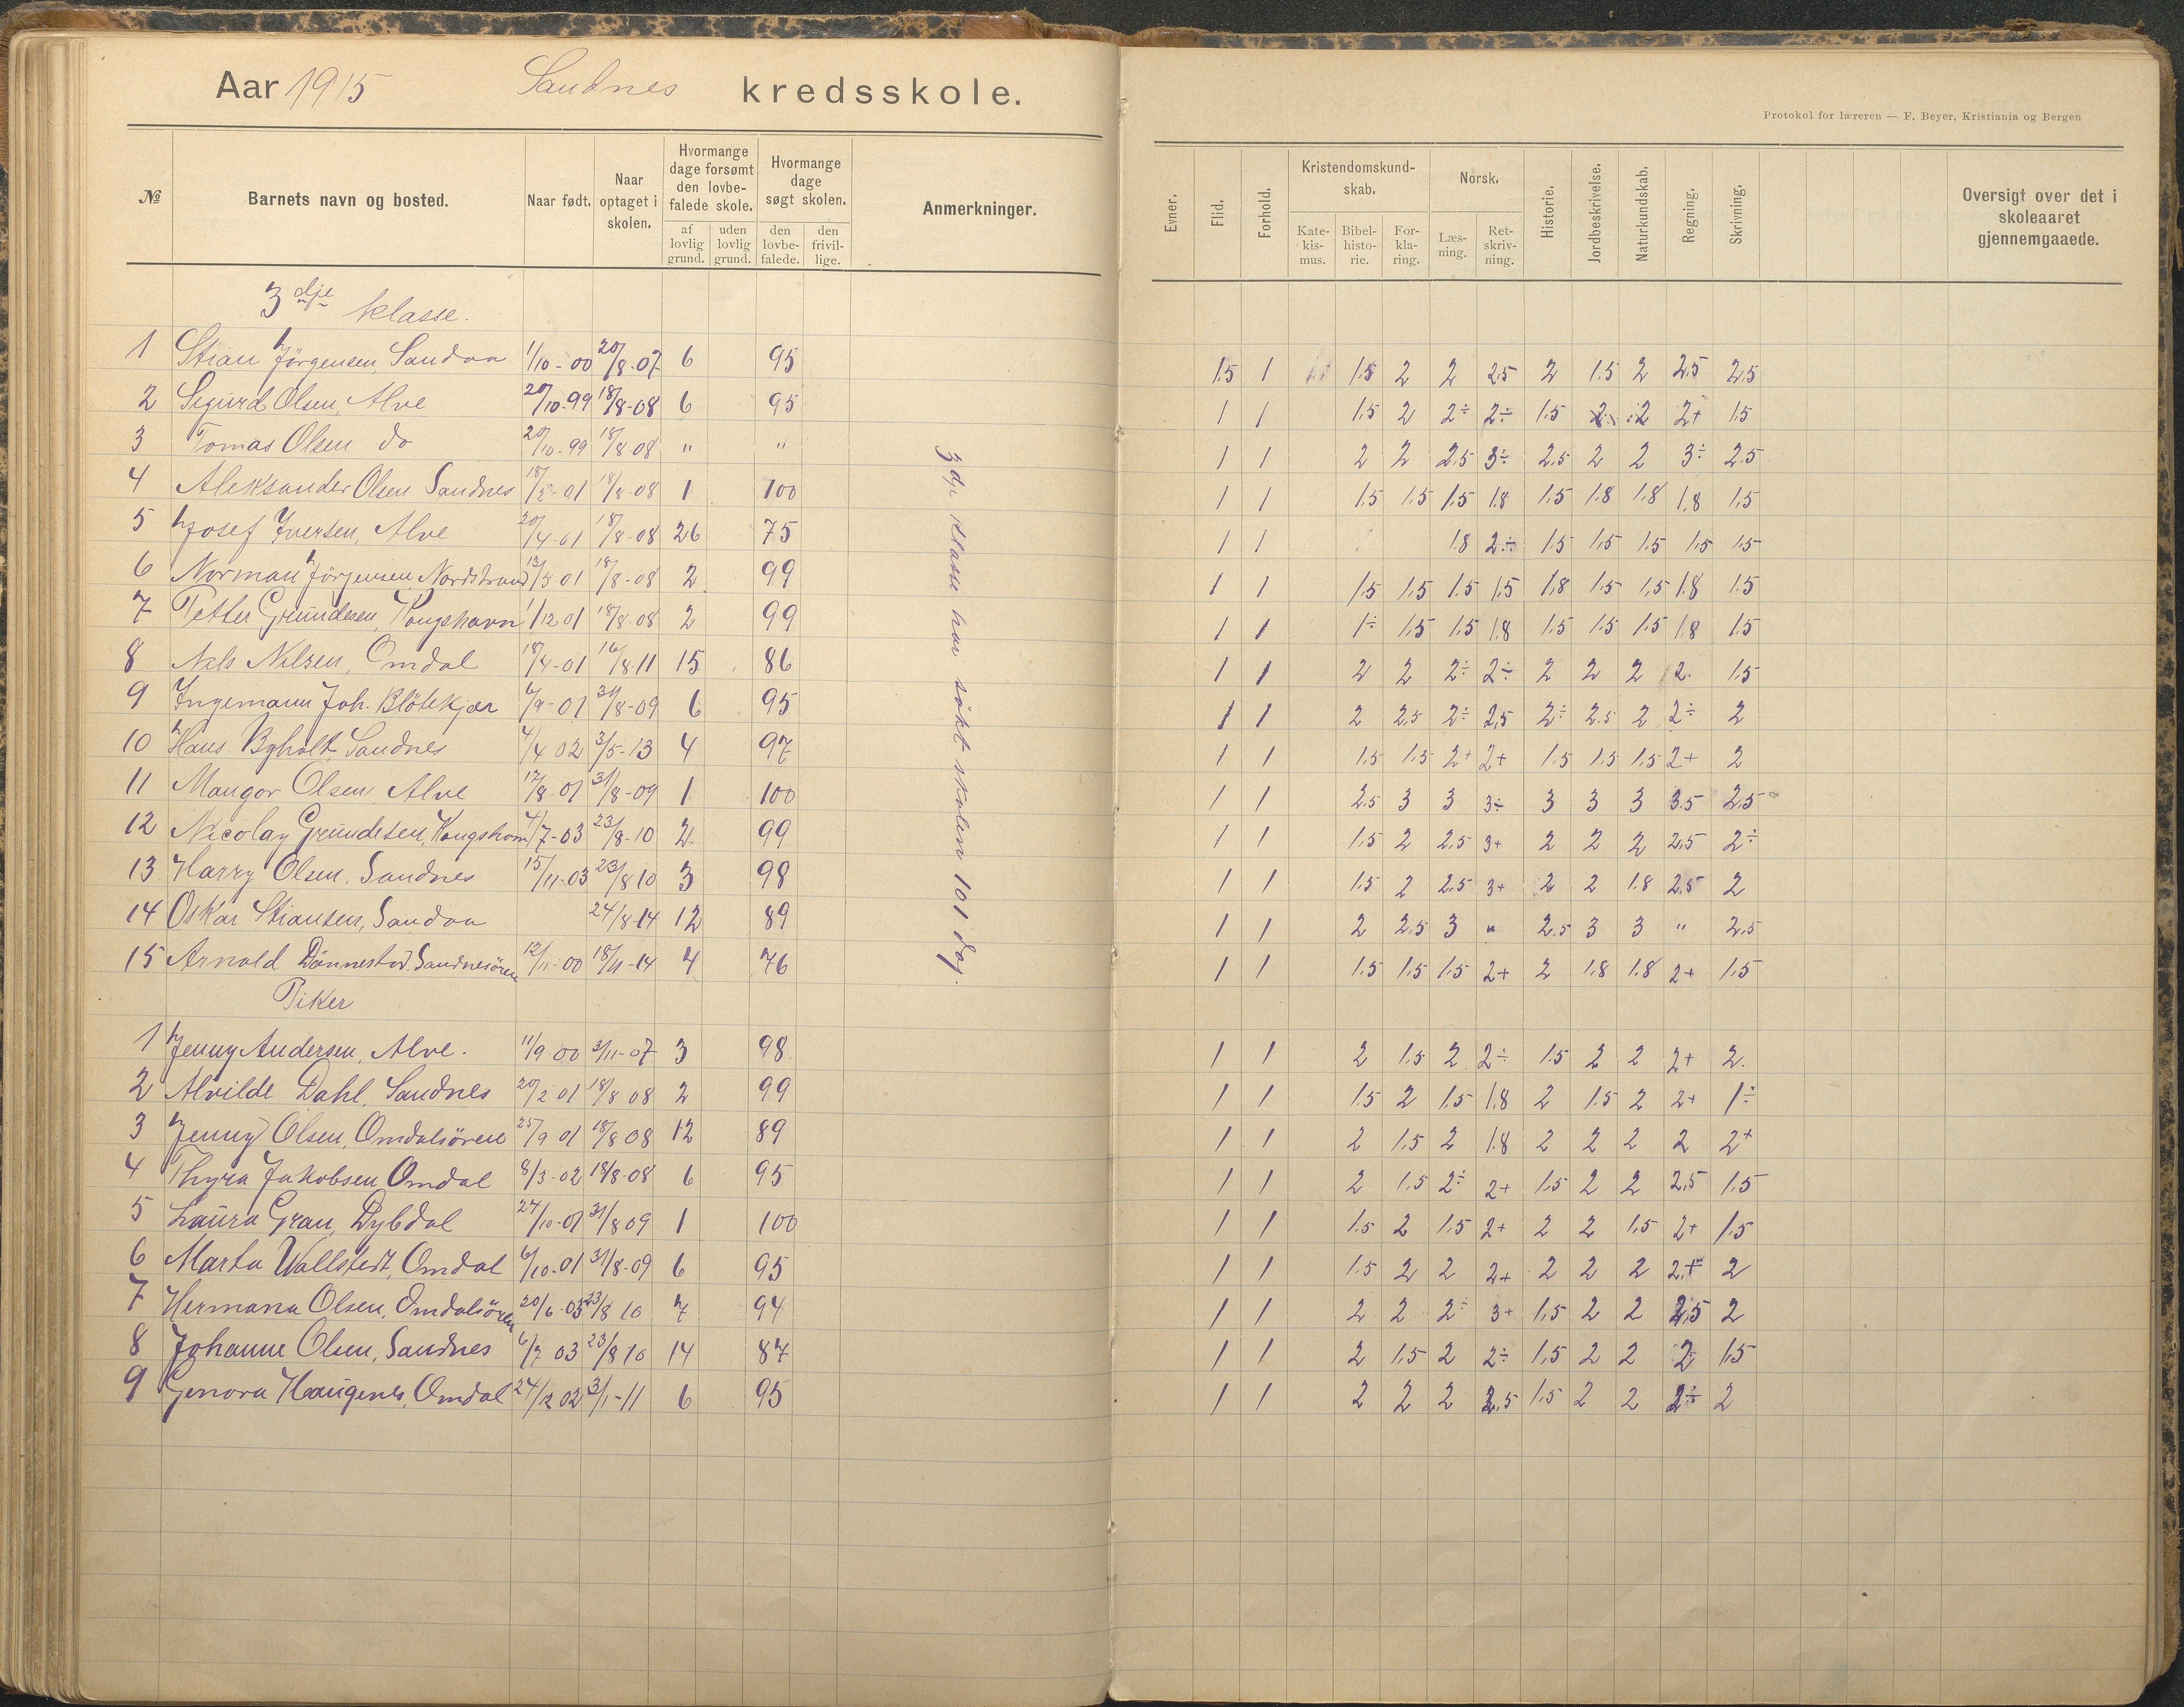 Aar 1915 Sandnes kredsskole.
Protokol for læreren — F. Beyer, Kristiania og Bergen
№ Barnets navn og bosted. Naar født. Naar optaget i skolen. Hvormange dage forsømt den lovbefalede skole. af lovlig grund. uden lovlig grund. Hvormange dage søgt skolen. den lovbefalede. den frivillige. Anmerkninger.
Evner. Flid. Forhold. Kristendomskundskab. Katekismus. Bibelhistorie. Forklaring. Norsk. Læsning. Retskrivning. Historie. Jordbeskrivelse. Naturkundskab. Regning. Skrivning. Oversigt over det i skoleaaret gjennemgaaede.
3dje klasse.
1 Stian Jörgensen, Sandaa 1/10-00 20/8-07 6 95 1.5 1 1.5 2 2 2.5 2 1.5 2 2.5 2.5
2 Sigurd Olsen, Alve 20/10-99 18/8-08 6 95 1 1 1.5 2 2÷ 2÷ 1.5 2 2 2+ 1.5
3 Tomas Olsen do 20/10-99 18/8 08 " " 1 1 2 2 2.5 3÷ 2.5 2 2 3÷ 2.5
4 Aleksander Olsen Sandnes 18/8-08 1 100 1 1 1.5 1.5 1.5 1.8 1.5 1.8 1.8 1.8 1.5
5 Josef Iversen, Alve 20/4-01 18/8-08 26 75 1 1 1.8 2÷ 1.5 1.5 1.5 1.5 1.5
6 Norman Jörgensen Nordstrand 13/5 01 18/8-08 2 99 1 1 1.5 1.5 1.5 1.5 1.8 1.5 1.5 1.8 1.5
7 Petter Grundesen, Kongshavn 1/12 01 18/8-08 2 99 1 1 1÷ 1.5 1.5 1.8 1.5 1.5 1.5 1.8 1.5
8 Nils Nilsen, Omdal 18/4-01 16/8-11 15 86 1 1 2 2 2÷ 2÷ 2 2 2 2 1.5
9 Ingemann Joh. Blötekjær 6/9-01 31/8-09 6 95 1 1 2 2.5 2÷ 2.5 2÷ 2.5 2 2÷ 2
10 Hans Byholt, Sandnes 4/4 02 3/5-13 4 97 1 1 1.5 1.5 2+ 2+ 1.5 1.5 1.5 2+ 2
11 Mangor Olsen Alve 17/8-01 31/8-09 1 100 1 1 2.5 3 3 3÷ 3 3 3 3.5 2.5
12 Nicolay Grundesen, Kongshavn 4/7-03 23/8-10 2 99 1 1 1.5 2 2.5 3+ 2 2 2 2.5 2÷
13 Harry Olsen. Sandnes 15/11-03 23/8 10 3 98 1 1 1.5 2 2.5 3+ 2 2 1.8 2.5 2
14 Oskar Stiansen, Sandaa 24/8-14 12 89 1 1 2 2.5 3 " 2.5 3 3 " 2.5
15 Arnold Dännestad. Sandnesören 12/11-00 18/11-14 4 76 1 1 1.5 1.5 1.5 2+ 2 1.8 1.8 2+ 1.5
3dje klasse har søkt skolen 101 dag.
Piker
1 Jenny Andersen, Alve. 11/9 00 3/11-07 3 98 1 1 2 1.5 2 2÷ 1.5 2 2 2+ 2.
2 Alvilde Dahl, Sandnes 20/2 01 18/8 08 2 99 1 1 1.5 2 1.5 1.8 2 1.5 2 2+ 1÷
3 Jenny Olsen, Omdalsören 25/9 01 18/8 08 12 89 1 1 2 1.5 2 1.8 2 2 2 2 2+
4 Thyra Jakobsen Omdal 8/3-02 18/8-08 6 95 1 1 2 1.5 2÷ 2+ 1.5 2 2 2.5 1.5
5 Laura Grau, Dybdal 27/10-01 31/8 09 1 100 1 1 1.5 2 1.5 2+ 2 2 1.5 2+ 1.5
6 Marta Wallstedt, Omdal 6/10-01 31/8-09 6 95 1 1 1.5 2 2 2+ 2 2 2 2+ 2
7 Hermana Olsen, Omdalsören 20/6-03 23/8 10 7 94 1 1 2 2 2÷ 3+ 1.5 2 2 2.5 2
8 Johanne Olsen, Sandnes 6/7 03 23/8 10 14 87 1 1 2 1.5 2 2÷ 1.5 2 2 2 1.5
9 Genora Haugenes, Omdal 24/12 02 3/1-11 6 95 1 1 2 2 2 2.5 1.5 2 2 2÷ 2